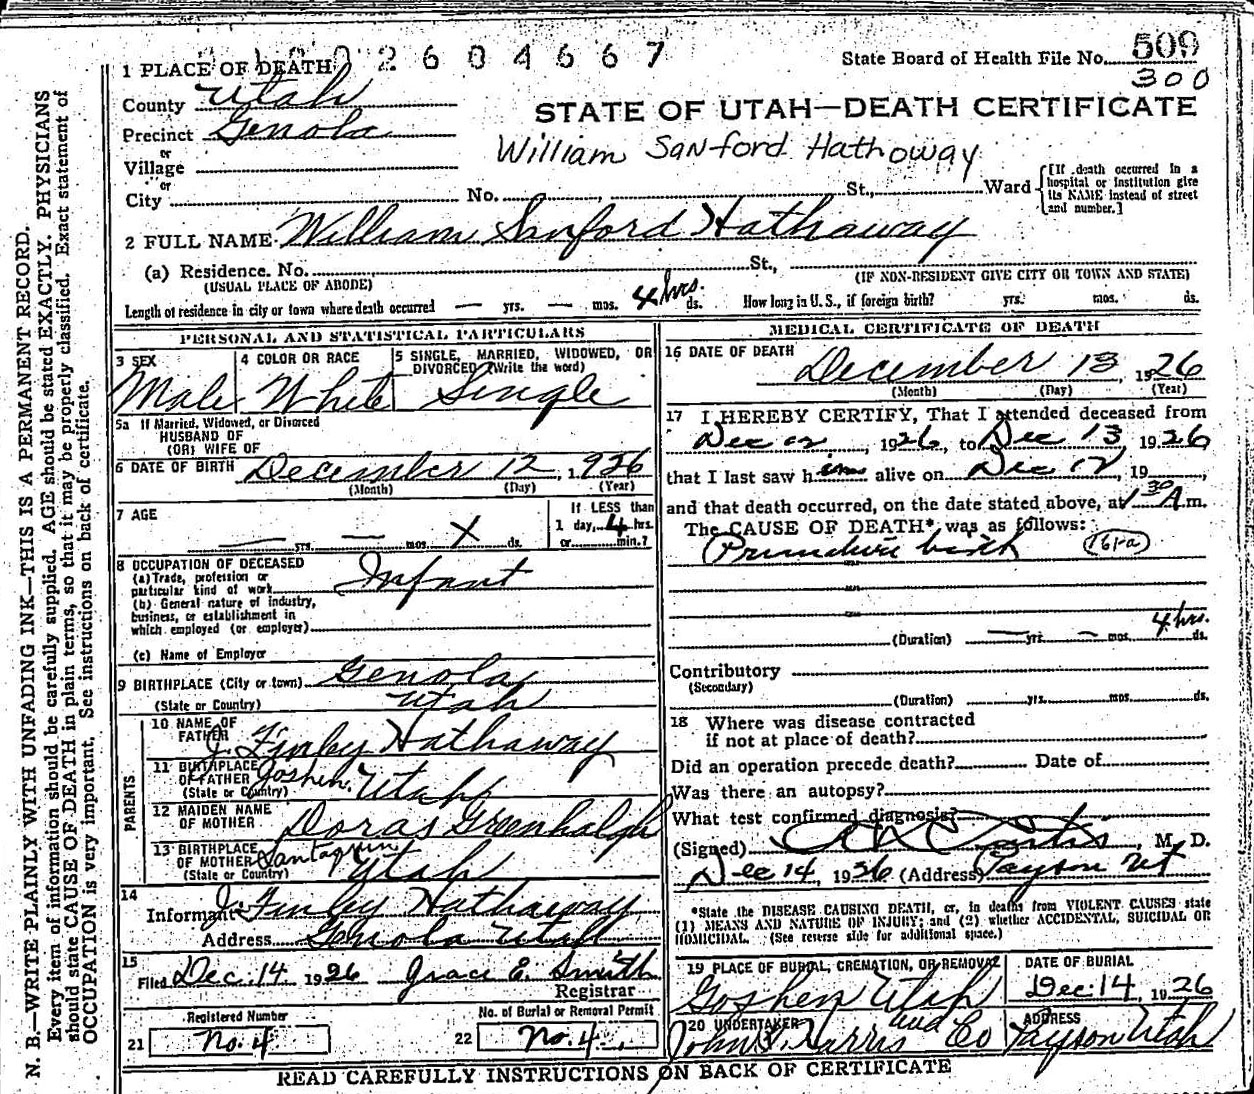 2604667
State Board of Health File No. 509
300
1 PLACE OF DEATH
County Utah
STATE OF UTAH—DEATH CERTIFICATE
Precinct Genola
or
William Sanford Hathoway
Village
or
City No. St., Ward
[If death occurred in a hospital or institution give its NAME instead of street and number.]
2 FULL NAME William Sanford Hathaway
(a) Residence. No. St.,
(USUAL PLACE OF ABODE) (IF NON-RESIDENT GIVE CITY OR TOWN AND STATE)
Length of residence in city or town where death occurred — yrs. — mos. 4 hrs. ds. How long in U. S., if foreign birth? yrs. mos. ds.
PERSONAL AND STATISTICAL PARTICULARS
3 SEX
Male
4 COLOR OR RACE
White
5 SINGLE, MARRIED, WIDOWED, OR
DIVORCED (Write the word)
Single
5a If Married, Widowed, or Divorced
HUSBAND OF
(OR) WIFE OF
6 DATE OF BIRTH December 12, 1926
(Month) (Day) (Year)
7 AGE
— yrs. — mos. X ds.
If LESS than
1 day, 4 hrs.
or min.?
8 OCCUPATION OF DECEASED
(a) Trade, profession or
particular kind of work Infant
(b) General nature of industry,
business, or establishment in
which employed (or employer)
(c) Name of Employer
9 BIRTHPLACE (City or town) Genola
(State or Country) Utah
PARENTS
10 NAME OF
FATHER J. Finley Hathaway
11 BIRTHPLACE
OF FATHER Goshen, Utah
(State or Country)
12 MAIDEN NAME
OF MOTHER Doras Greenhalgh
13 BIRTHPLACE
OF MOTHER Santaquin Utah
(State or Country)
14
Informant J. Finley Hathaway
Address Genola Utah
15
Filed Dec. 14 1926 Grace E. Smith
Registrar
Registered Number
21 No. 4
No. of Burial or Removal Permit
22 No. 4
MEDICAL CERTIFICATE OF DEATH
16 DATE OF DEATH
December 13, 1926
(Month) (Day) (Year)
17 I HEREBY CERTIFY, That I attended deceased from
Dec 12, 1926, to Dec 13, 1926
that I last saw him alive on Dec 12, 19
and that death occurred, on the date stated above, at 1 30 A.m.
The CAUSE OF DEATH* was as follows:
Premature birth 161-a
(Duration) — yrs. — mos. 4 hrs. ds.
Contributory
(Secondary)
(Duration) yrs. mos. ds.
18 Where was disease contracted
if not at place of death?
Did an operation precede death? Date of
Was there an autopsy?
What test confirmed diagnosis?
(Signed) Curtis, M. D.
Dec 14, 1926 (Address) Payson Ut
*State the DISEASE CAUSING DEATH, or, in deaths from VIOLENT CAUSES state
(1) MEANS AND NATURE OF INJURY; and (2) whether ACCIDENTAL, SUICIDAL OR
HOMICIDAL. (See reverse side for additional space.)
19 PLACE OF BURIAL, CREMATION, OR REMOVAL
Goshen Utah
DATE OF BURIAL
Dec. 14, 1926
20 UNDERTAKER
Harris and Co
ADDRESS
Payson Utah
READ CAREFULLY INSTRUCTIONS ON BACK OF CERTIFICATE
N. B.—WRITE PLAINLY WITH UNFADING INK—THIS IS A PERMANENT RECORD.
Every item of information should be carefully supplied. AGE should be stated EXACTLY. PHYSICIANS
should state CAUSE OF DEATH in plain terms, so that it may be properly classified. Exact statement of
OCCUPATION is very important. See instructions on back of certificate.